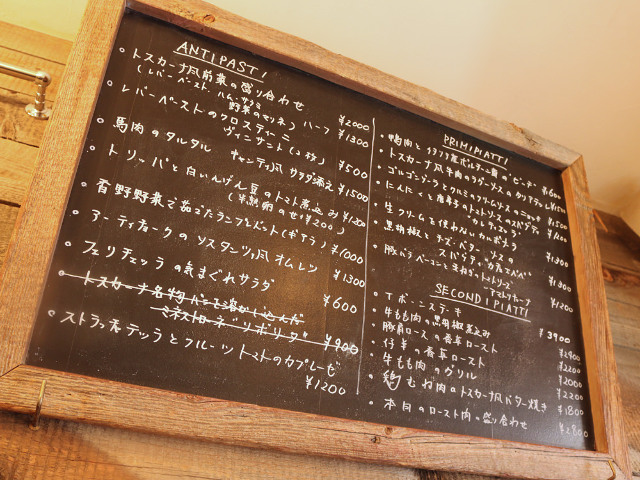 ANTIPASTI
トスカーナ風前菜の盛り合わせ
(レバーペースト・ハム・サラミ
野菜のマリネ) ¥2000
ハーフ ¥1300
レバーペーストのクロスティーニ
ヴィンサント(2枚) ¥500
馬肉のタルタル キャンティ風 サラダ添え ¥1500
トリッパと白いんげん豆のトマト煮込み ¥1200
(半熟卵のせ ¥200)
香野野菜で茹でたランプレドット(ギアラ) ¥1000
アーティチョークのソスタンツァ風オムレツ ¥1300
フェリチェッラの気まぐれサラダ ¥600
トスカーナ名物 パンを溶かし込んだ
ミネストローネ"リボリータ" ¥900
ストラッチャテッラとフルーツトマトのカプレーゼ
¥1200
PRIMI PIATTI
トスカーナ風牛肉のラグーソース
ゴルゴンゾーラとクルミのクリームソースのニョッキ ¥1500
にんにくと唐辛子のトマトソースのスパゲティ ¥1100
生クリームを使わないカルボナーラ ¥1300
黒胡椒とチーズ、バターソースの
スパゲティ カチョエペペ ¥1300
豚バラベーコンと玉ねぎのトマトソース
アマトリチャーナ ¥1200
SECONDI PIATTI
Tボーンステーキ ¥3900
牛もも肉の黒胡椒煮込み ¥2400
豚肩ロースの香草ロースト ¥2200
仔羊の香草ロースト ¥2000
牛もも肉のグリル ¥2200
鶏むね肉のトスカーナ風バター焼き ¥1800
本日のロースト肉の盛り合わせ ¥2800